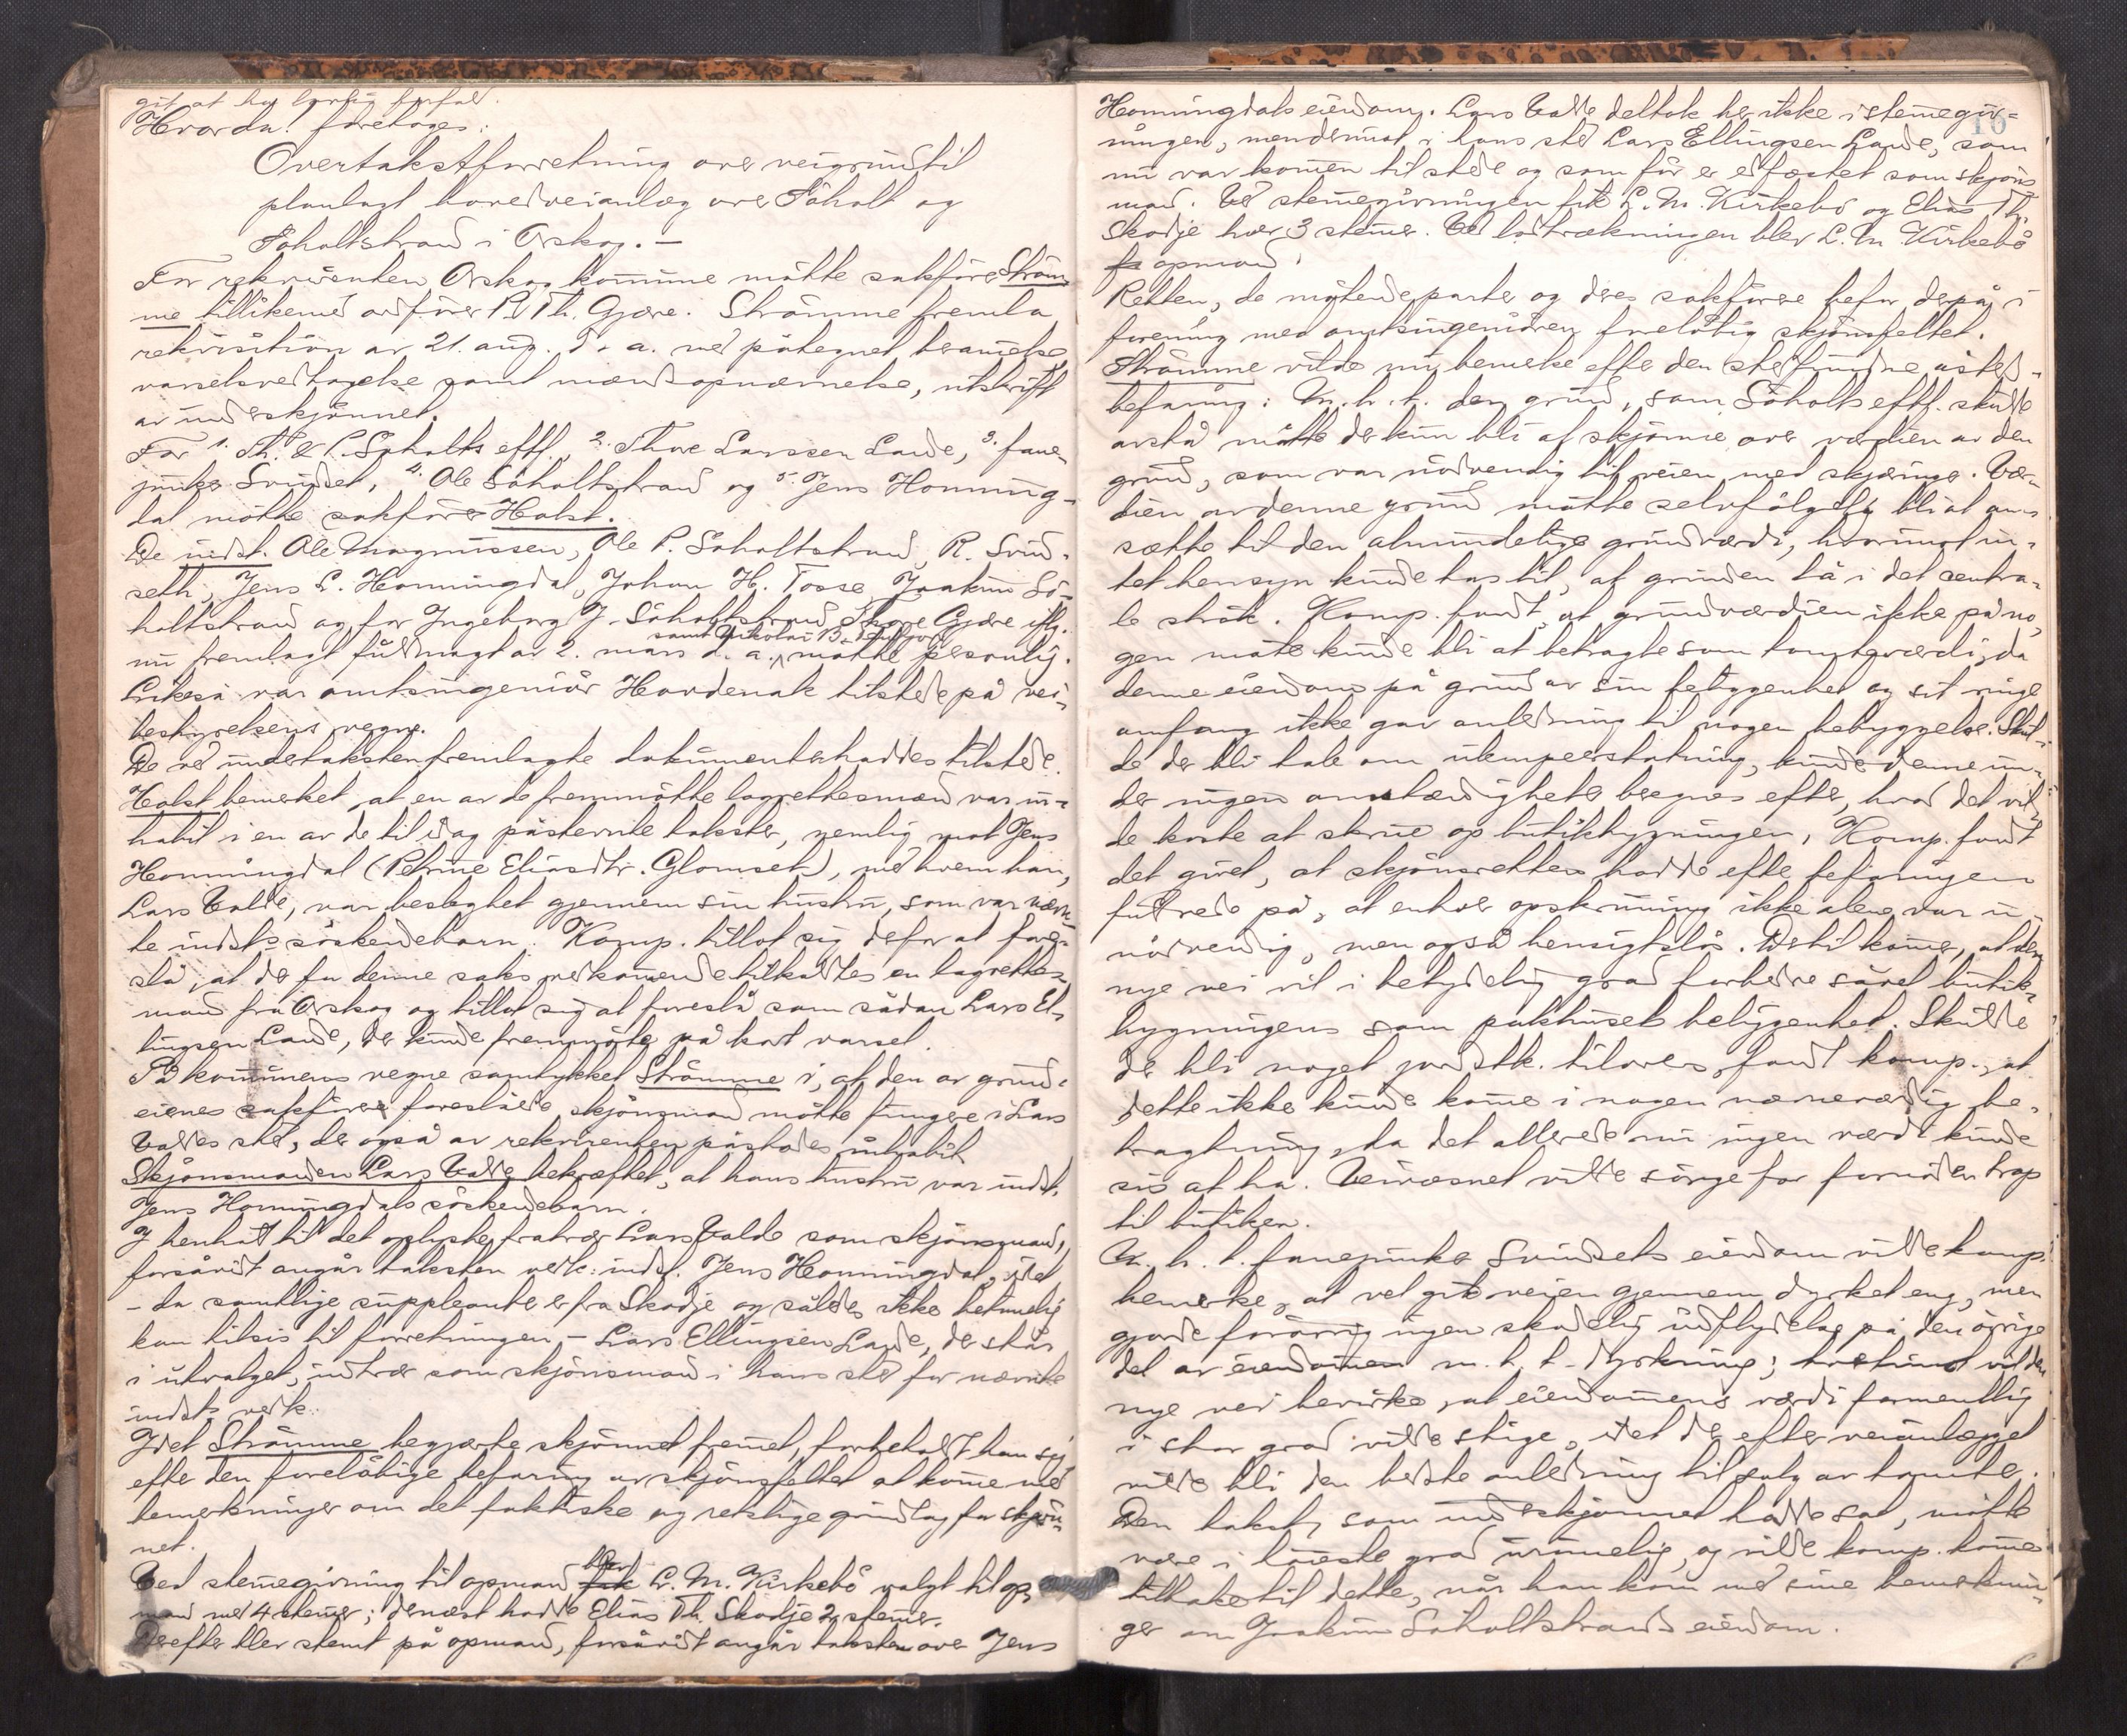 git at ha lovlig forfald.
Hvorda! foretoges:
Overtakstforretning over veigrund til
planlagt hovedveianlæg over Søholt og
Søholtstrand i Ørskog. —
For rekvirenten Ørskog kommune møtte sakfører Strøm-
me tillikemed ordfører P. Th. Gjære. Strømme fremla
rekvisition av 21. aug. d. a. med påtegnet beramelse,
varselsvedtagelse samt mændsopnævnelse, utskrift
av underskjønnet.
For 1. Th. & P. Søholts eftf., 2. Thore Larssen Lande, 3. fane-
junker Svindset, 4. Ole Søholtstrand og 5. Jens Honning-
dal møtte sakfører Holst.
De indst. Ole Magnussen, Ole P. Søholtstrand, R. Svind-
seth, Jens L. Honningdal, Johan H. Tosse, Joakim Sø-
holtstrand og for Ingeborg J. Søholtstrand Thore Gjære iflg.
samt Nikolai B.
nu fremlagt fuldmagt av 2. mars d. a., møtte personlig.
Likeså var amtsingeniør Hovdenak tilstede på vei-
bestyrelsens vegne.
De ved undertaksten fremlagte dokumenter haddes tilstede.
Holst bemerket, at en av de fremmøtte lagrettesmænd var in-
habil i en av de til idag påstevnte takster, nemlig mot Jens
Honningdal (Petrine Eliasdtr. Glomset), med hvem han,
Lars Valde, var beslegtet gjennem sin hustru, som var nævn-
te indst.s søskendebarn. Komp. tillot sig derfor at fore-
slå, at der for denne saks vedkommende tilkaldtes en lagrettes-
mand fra Ørskog og tillot sig at foreslå som sådan Lars El-
lingsen Lande, der kunde fremmøte på kort varsel.
På kommunens vegne samtykket Strømme i, at den av grund-
eiernes sakfører foreslåede skjønsmand måtte fungere i Lars
Valdes sted, der også av rekvirenten påstodes inhabil.
Skjønsmanden Lars Valde bekræftet, at hans hustru var indst.
Jens Honningdals søskendebarn.
I henhold til det oplyste fratrær Lars Valde som skjønsmand,
forsåvidt angår taksten vedk. indst. Jens Honningdal, idet
- da samtlige suppleanter er fra Skodje og således ikke betimelig
kan tilsis til forretningen, - Lars Ellingsen Lande, der står
i utvalget, indtrær som skjønsmand i hans sted for nævnte
indst.s vedk.
Idet Strømme begjærte skjønnet fremmet, forbeholdt han sig
efter den foreløbige befaring av skjønsfeltet at komme med
bemerkninger om det faktiske og retslige grundlag for skjøn-
net.
Ved stemmegivning til opmand blev L. M. Kirkebø valgt til op-
mand med 4 stemmer; dernæst hadde Elias Th. Skodje 2 stemmer.
Derefter blev stemt på opmand, forsåvidt angår taksten over Jens
10
Honningdals eiendom. Lars Valde deltok her ikke i stemmegiv-
ningen, men derimot i hans sted Lars Ellingsen Lande, som
nu var kommen tilstede og som før er edfæstet som skjøns-
mand. Ved stemmegivningen fik L. M. Kirkebø og Elias Th.
Skodje hver 3 stemmer. Ved lodtrækningen blev L. M. Kirkebø
opmand.
Retten, de møtende parter og deres sakførere befor derpå i
forening med amtsingeniøren foreløbig skjønsfeltet.
Strømme vilde nu bemerke efter den stedfundne åsteds-
befaring: M. h. t. den grund, som Søholts eftf. skulde
avstå måtte der kun bli at skjønne over værdien av den
grund, som var nødvendig til veien med skjæringer. Vær-
dien av denne grund måtte selvfølgelig bli at an-
sætte til den almindelige grundværdi, hvorimot in-
tet hensyn kunde tas til, at grunden lå i det centra-
le strøk. Komp. fandt, at grundværdien ikke på no-
gen måte kunde bli at betragte som tomteværdi, da
denne eiendom på grund av sin beliggenhet og sit ringe
omfang ikke gav anledning til nogen bebyggelse. Skul-
de der bli tale om ulempeerstatning, kunde denne un-
der ingen omstændigheter beregnes efter, hvad det vil-
de koste at skrue op butikbygningen. Komp. fandt
det givet, at skjønsretten hadde efter befaringen
fuld rede på, at enhver opskruning ikke alene var u-
nødvendig, men også hensigtsløs. Dertil kommer, at den
nye vei vil i betydelig grad forbedre såvel butik-
bygningens som pakhusets beliggenhet. Skulde
der bli noget jordstk. tilovers, fandt komp., at
dette ikke kunde komme i nogen nævneværdig be-
tragtning, da det allerede nu ingen værdi kunde
sis at ha. Veivæsnet vilde sørge for fornøden trap
til butiken.
M. h. t. fanejunker Svindsets eiendom vilde komp.
bemerke, at vel gik veien gjennem dyrket eng, men
gjorde forøvrig ingen skadelig indflydelse på den øvrige
del av eiendommen m. h. t. dyrkning; tvertimot vil den
nye vei bevirke, at eiendommens værdi formentlig
i stor grad vilde stige, idet der efter veianlægget
vilde bli den bedste anledning til salg av tomter.
Den takst, som underskjønnet hadde sat, måtte
være i høieste grad urimelig, og vilde komp. komme
tilbake til dette, når han kom med sine bemerknin-
ger om Joakim Søholtstrands eiendom.